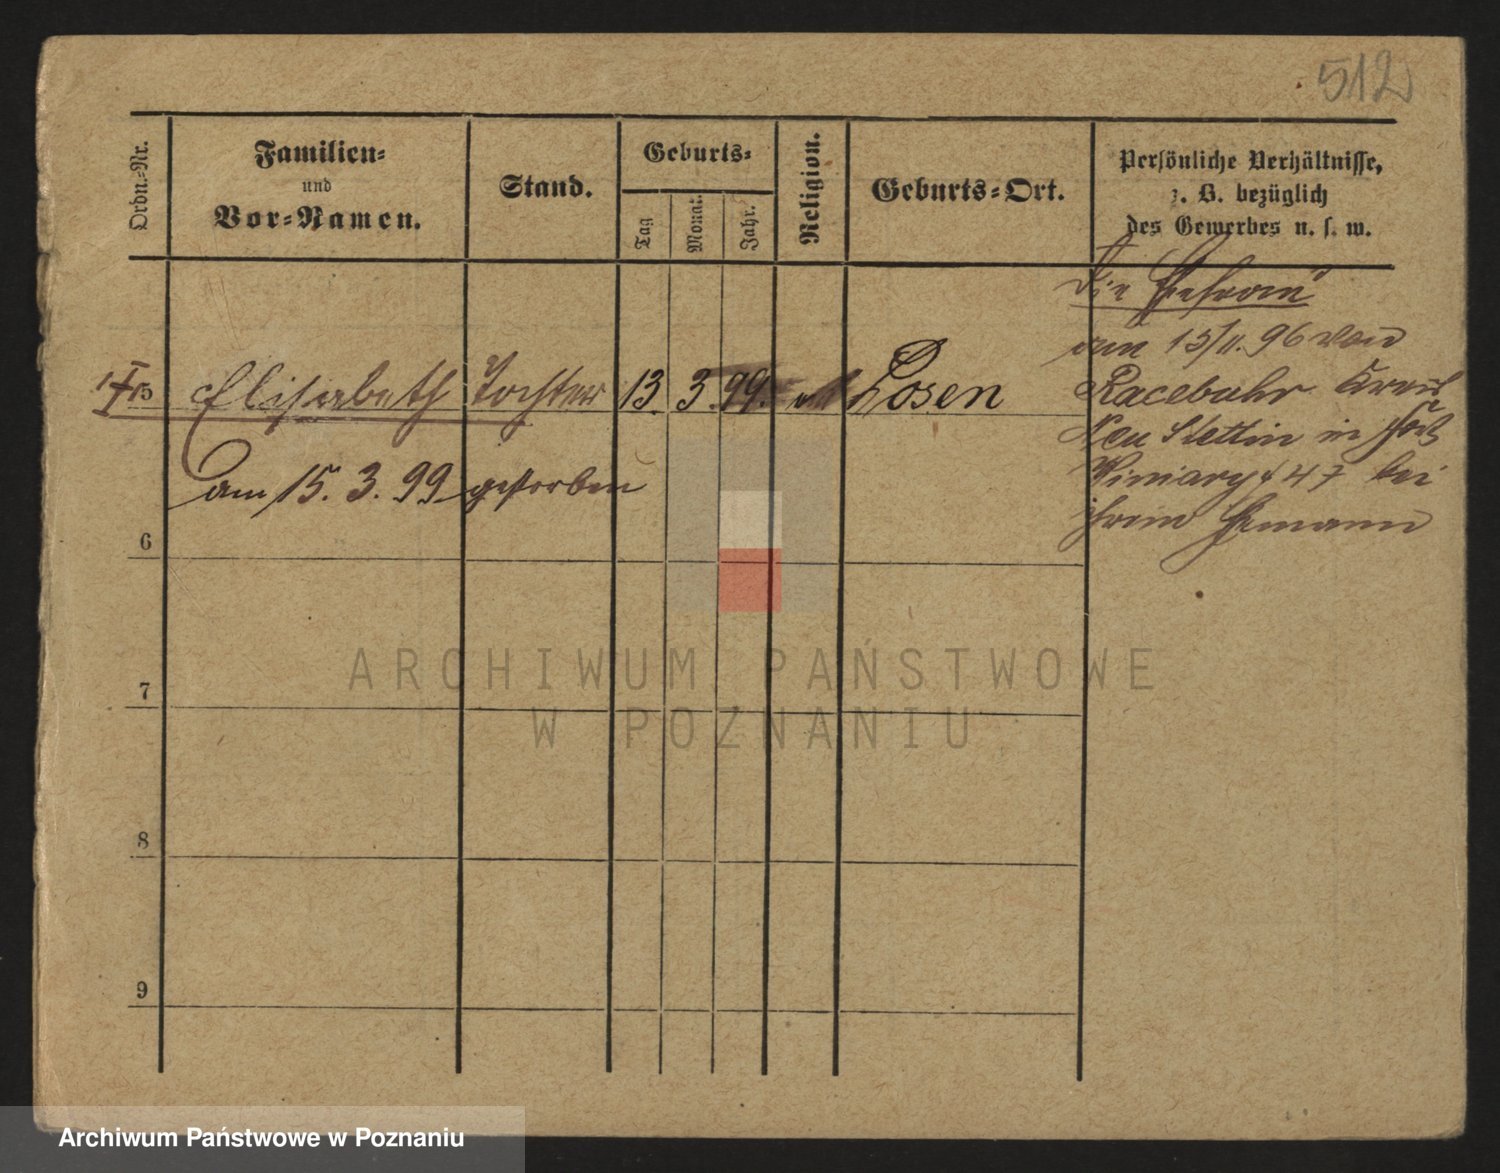 512
Ordn.-Nr.
Familien-
und
Vor-Namen.
Stand.
Geburts-
Tag
Monat
Jahr.
Religion.
Geburts-Ort.
Persönliche Verhältnisse,
z. B. bezüglich
des Gewerbes u. s. w.
Die Ehefrau
am 13/11. 96 von
5 Elisabeth Tochter 13. 3. 99. Posen
Racebuhr Kreis
Neu Stettin in Fort
am 15. 3. 99 gestorben
Winiary 47 bei
ihrem Ehemann
6
7
8
9
ARCHIWUM PAŃSTWOWE
W POZNANIU
Archiwum Państwowe w Poznaniu